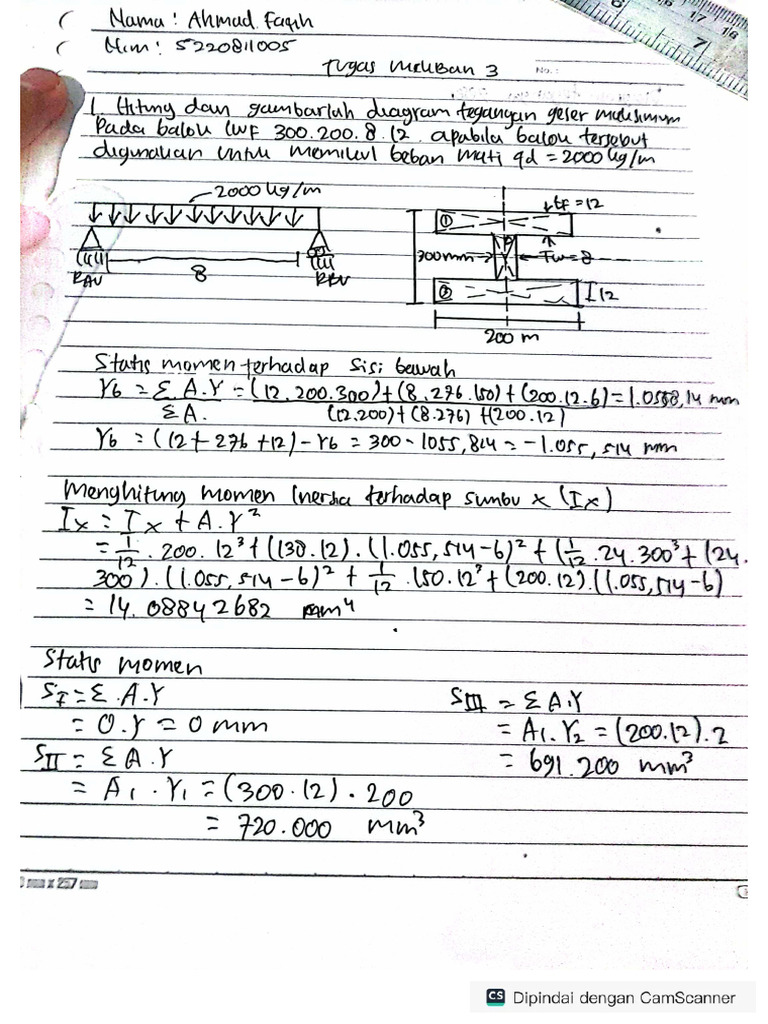 Nama : Ahmad Faqih
Nim : 5220811005
Tugas MekBan 3
No.:
1. Hitung dan gambarlah diagram tegangan geser maksimum
Pada balok IWF 300.200.8.12. apabila balok tersebut
digunakan untuk memikul beban mati qd = 2000 kg/m
2000 kg/m
RAV
8
RBV
①
tf = 12
300mm
Tw = 8
②
12
200 m
Statis momen terhadap sisi bawah
Yb = Σ A.Y = (12.200.300)+(8.276.150)+(200.12.6) = 1.0558,14 mm
ΣA. (12.200)+(8.276)+(200.12)
Yb = (12+276+12)-Yb = 300-1055,814 = -1.055,514 mm
Menghitung momen Inersia terhadap sumbu x (Ix)
Ix = Ix + A.Y²
= 1/12 . 200. 12³+((130.12).((1.055,514-6)²+(1/12 .24.300³+(24.
300).((1.055,514-6)²+ 1/12 .150.12³+(200.12).((1.055,514-6)
= 14.08842682 mm⁴
Statis momen
SI = Σ.A.Y
= 0.Y = 0 mm
SII = ΣA.Y
= A1.Y1 = (300.12).200
= 720.000 mm³
SIII = ΣA.Y
= A1.Y2 = (200.12).2
= 691.200 mm³
mm x 257 mm
CS Dipindai dengan CamScanner